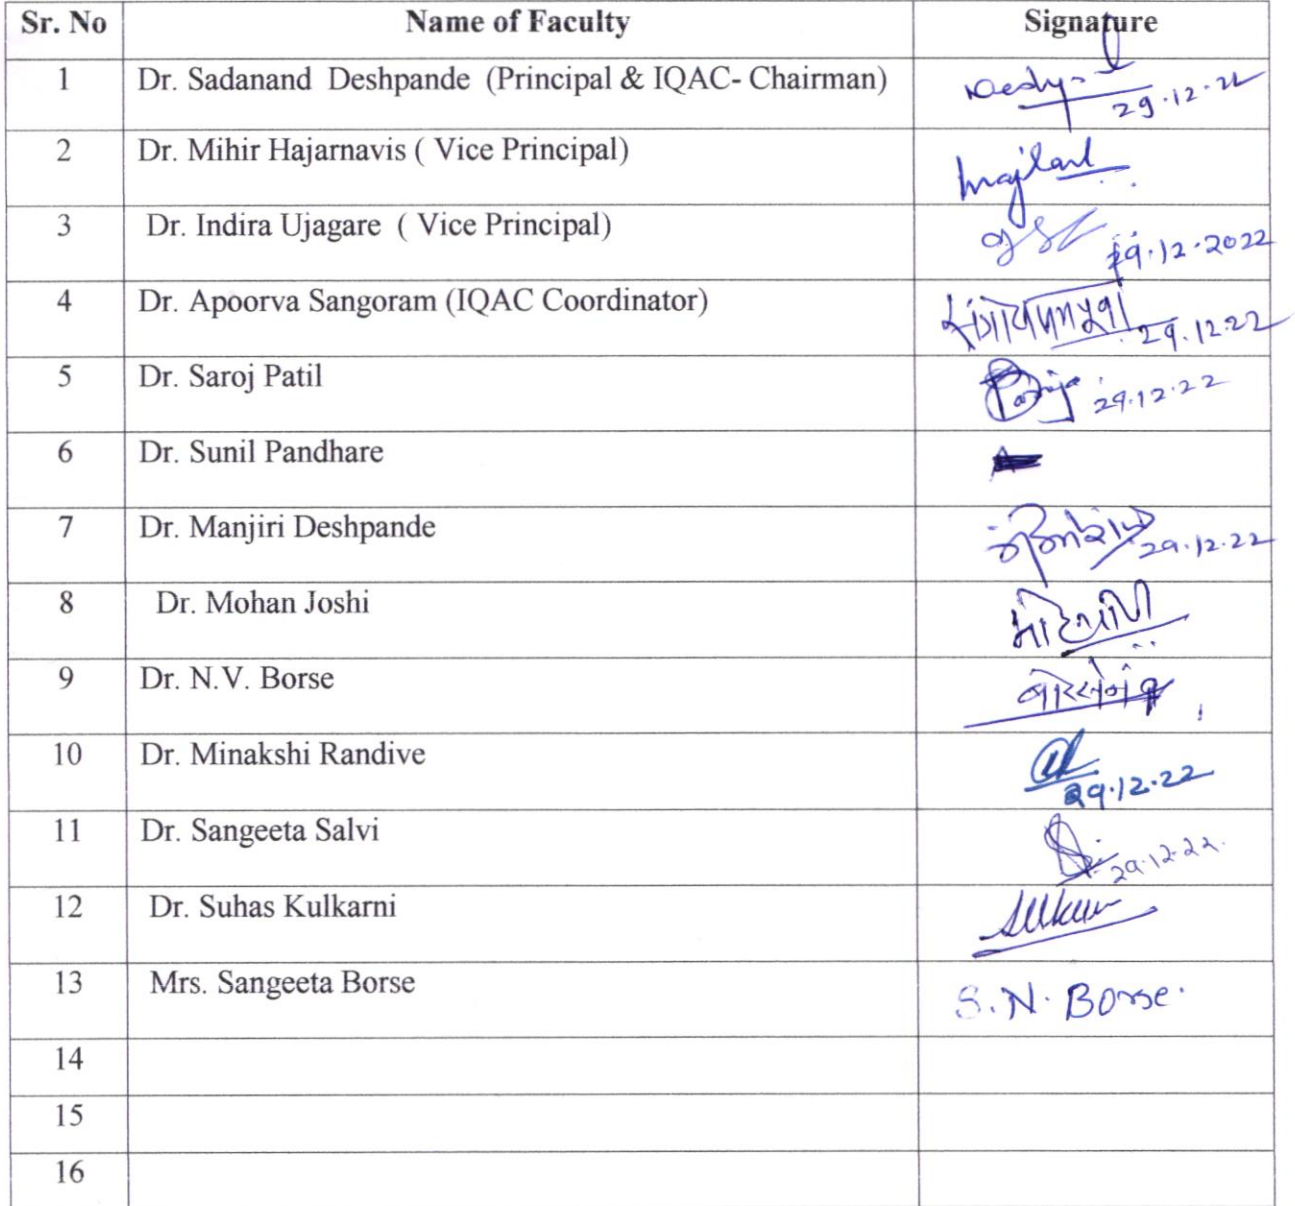 Sr. No Name of Faculty Signature
1 Dr. Sadanand Deshpande (Principal & IQAC- Chairman)
29.12.22
2 Dr. Mihir Hajarnavis ( Vice Principal)
3 Dr. Indira Ujagare ( Vice Principal)
29.12.2022
4 Dr. Apoorva Sangoram (IQAC Coordinator)
29.12.22
5 Dr. Saroj Patil
29.12.22
6 Dr. Sunil Pandhare
7 Dr. Manjiri Deshpande
29.12.22
8 Dr. Mohan Joshi
9 Dr. N.V. Borse
10 Dr. Minakshi Randive
29.12.22
11 Dr. Sangeeta Salvi
29.12.22.
12 Dr. Suhas Kulkarni
13 Mrs. Sangeeta Borse S. N. Borse.
14
15
16